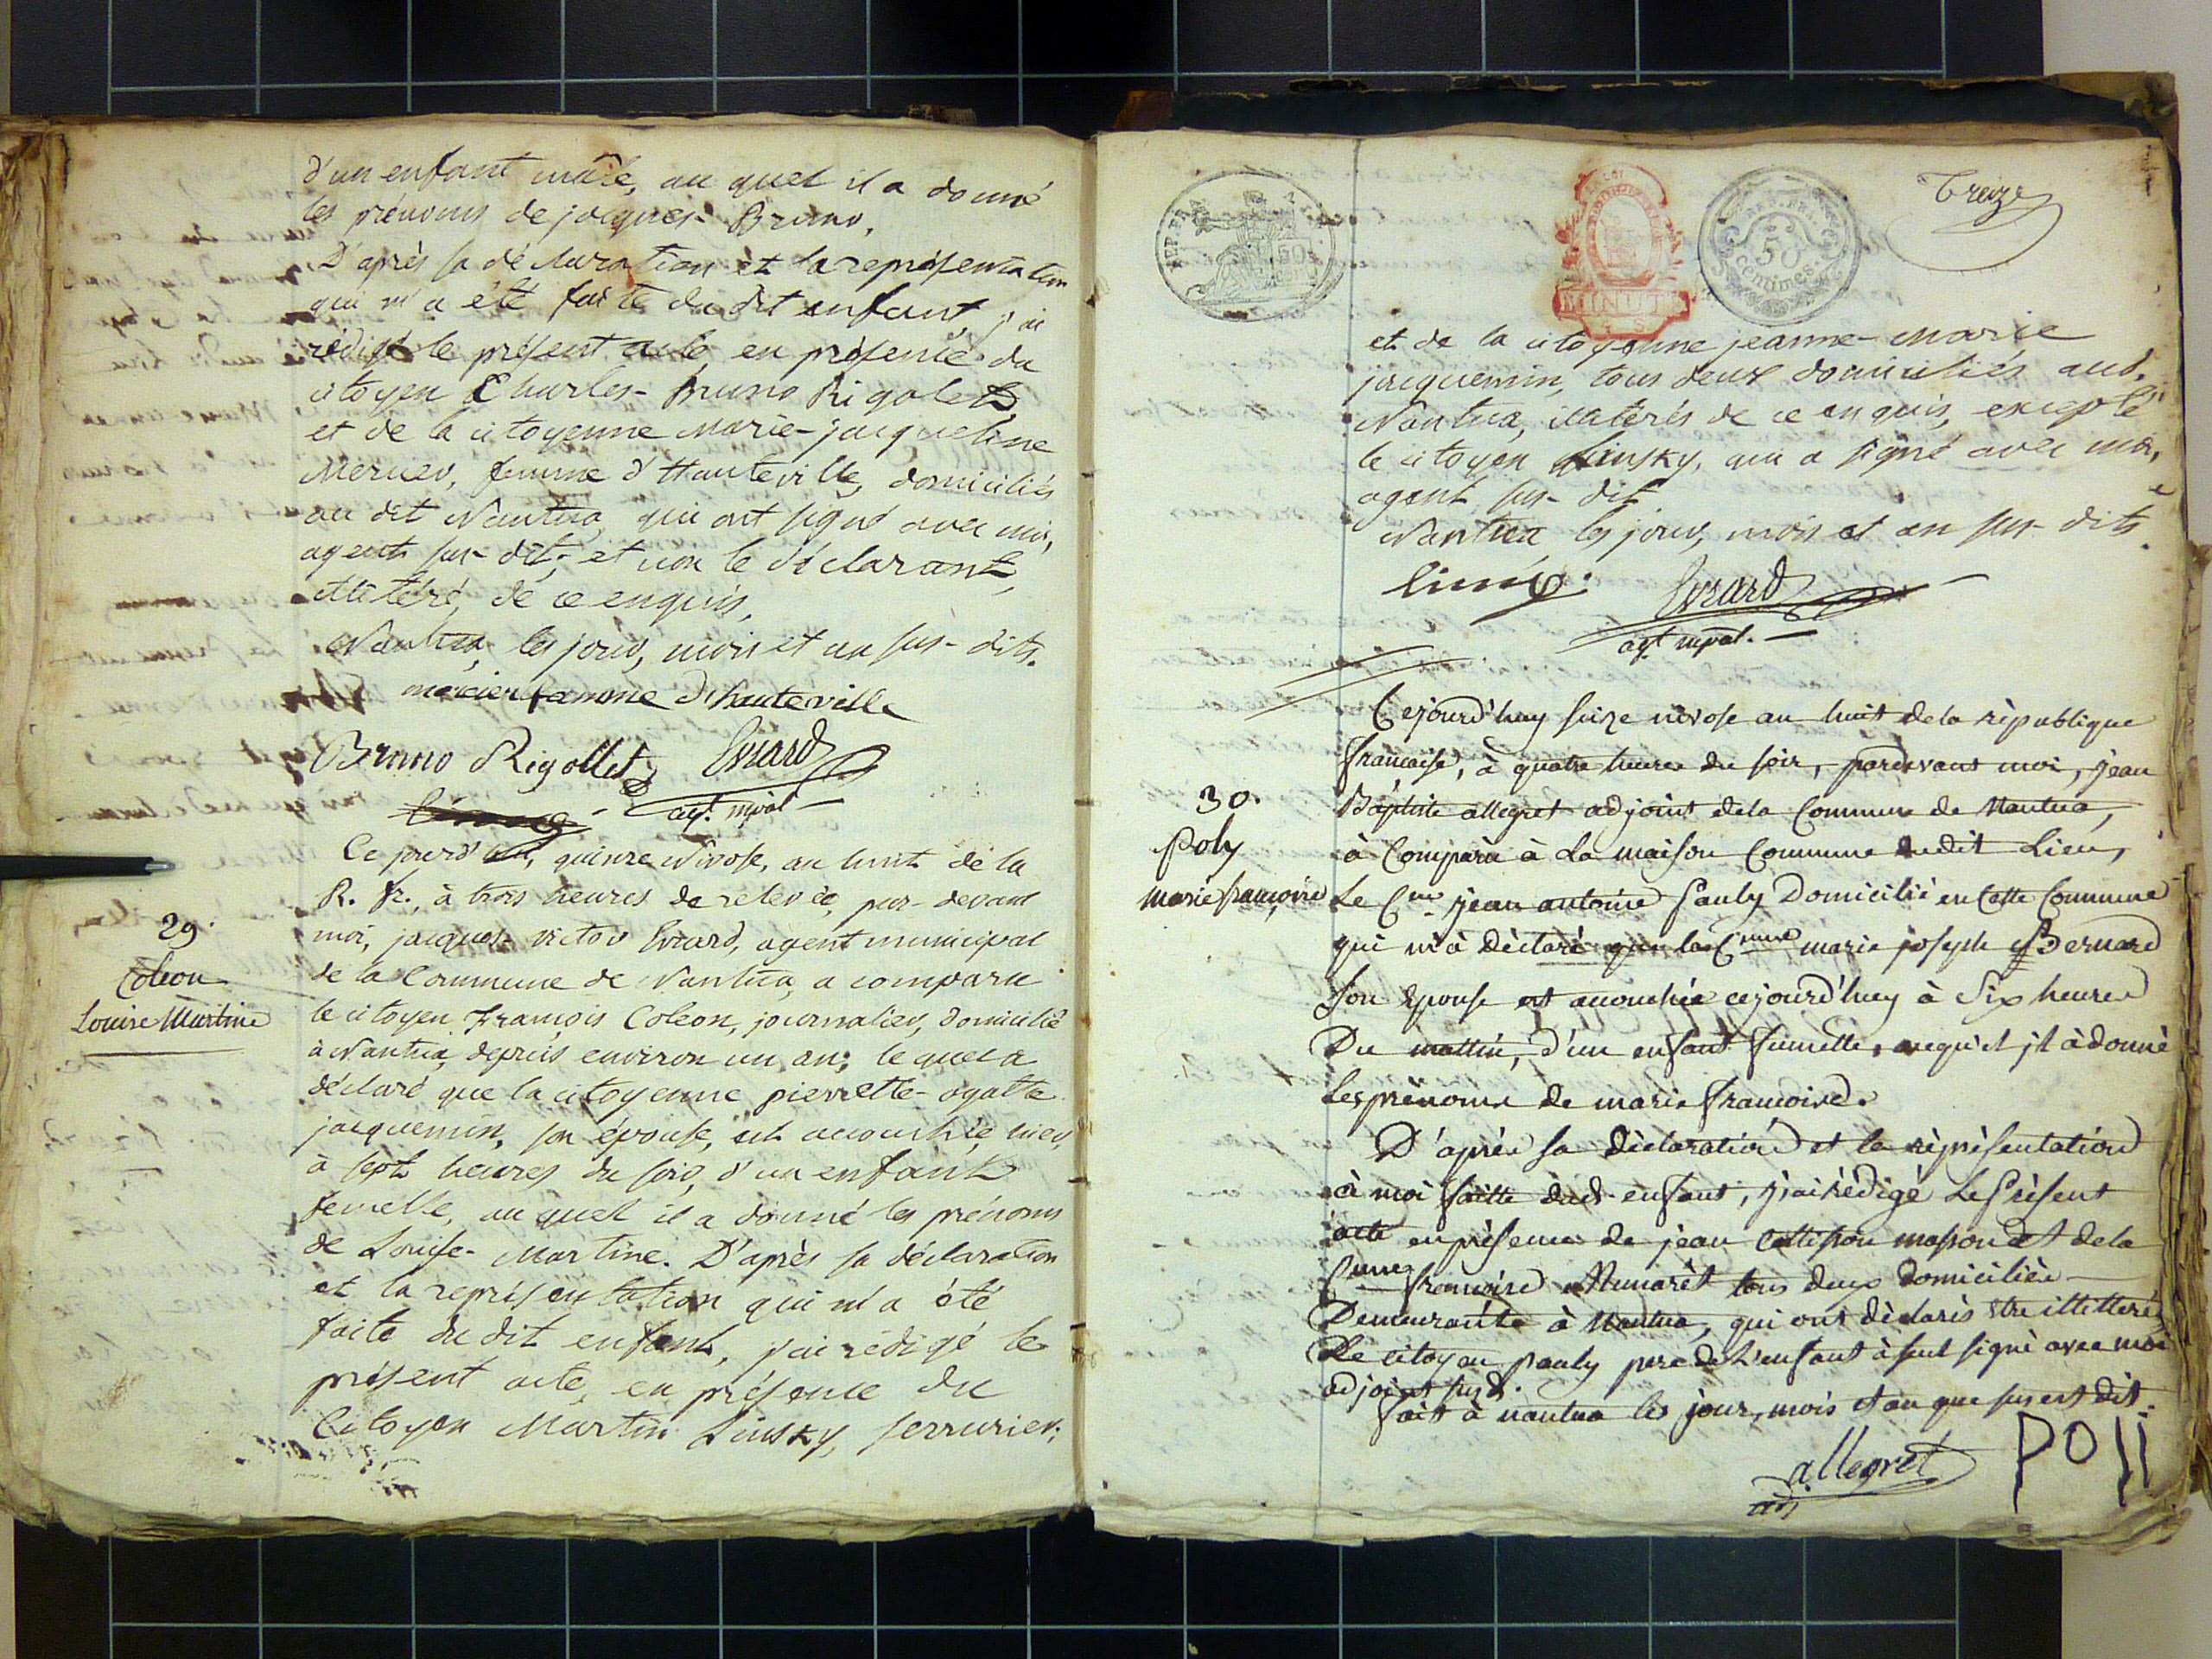 d'un enfant mâle, au quel il a donné
les prénoms de jacques-Bruno.
D'après sa déclaration et la representation
qui m'a été faite du dit enfant, j'ai
rédigé le présent acte, en présence du
citoyen Charles-Bruno Rigolet,
et de la citoyenne Marie-jacqueline
Mercier, femme d'Hauteville, domiciliés
au dit Nantua, qui ont signé avec moi,
agent sus-dit; et non le déclarant,
illitéré, de ce enquis,
Nantua, les jour, mois et an sus-dits.
mercier famme d'hauteville
Bruno Rigollet Evrard
agt. mpal
Ce jourd'hui, quinze Nivose, an huit de la
R. fr., à trois heures de relevée, par-devant
moi, jacques-victor Evrard, agent municipal
de la Commune de Nantua, a comparu
29.
Coleon
Louise Martine
le citoyen François Coleon, journalier, domicilié
à Nantua, depuis environ un an; lequel a
déclaré que la citoyenne pierrette-agathe
jacquemin, son épouse, est accouchée hier,
à sept heures du soir, d'un enfant
femelle, au quel il a donné les prénoms
de Louise-Martine. D'après sa déclaration
et la représentation qui m'a été
faite du dit enfant, j'ai rédigé le
présent acte, en présence du
Citoyen Martin Linsky, serrurier,
REP. FRA.
50
MINUTE
REP. FRA.
50
centimes
Treize
et de la citoyenne jeanne-Marie
jacquemin, tous deux domiciliés aud.
Nantua, illitérés de ce enquis, excepté
le citoyen Linsky, qui a signé avec moi,
agent sus-dit
Nantua les jour, mois et an sus-dits.
Evrard
agt mpal.
Cejourd'huy seize nivose an huit de la rèpublique
française, à quatre heures du soir, pardevant moi, jean
Baptiste allegret adjoint de la Commune de Nantua,
à Comparu à la maison Commune dudit Lieu,
30.
Poly
marie françoise
Le Cen jean antoine Pauly Domicilié en Cette Commune
qui m'à dèclaré que la Cenne marie joseph Bernard
son èpouse est accouchée cejourd'huy à Six heures
Du mattin, d'un enfant fumelle, auquel jl à donné
Les prènoms de marie françoise.
D'après sa dèclaration et la rèprésentation
à moi faitte dud. enfant, j'ai rédigé Le Prèsent
acte en présence de jean masson et de la
Cenne françoise Munarèt tous deux domiciliès
Demeurants à Nantua, qui ont dèclarés être illitterés
Le citoyen pauly pere de L'enfant à seul signé avec moi
adjoint susd.
fait à nantua les jour, mois et an que sus est dit.
allegret
adj
POLI